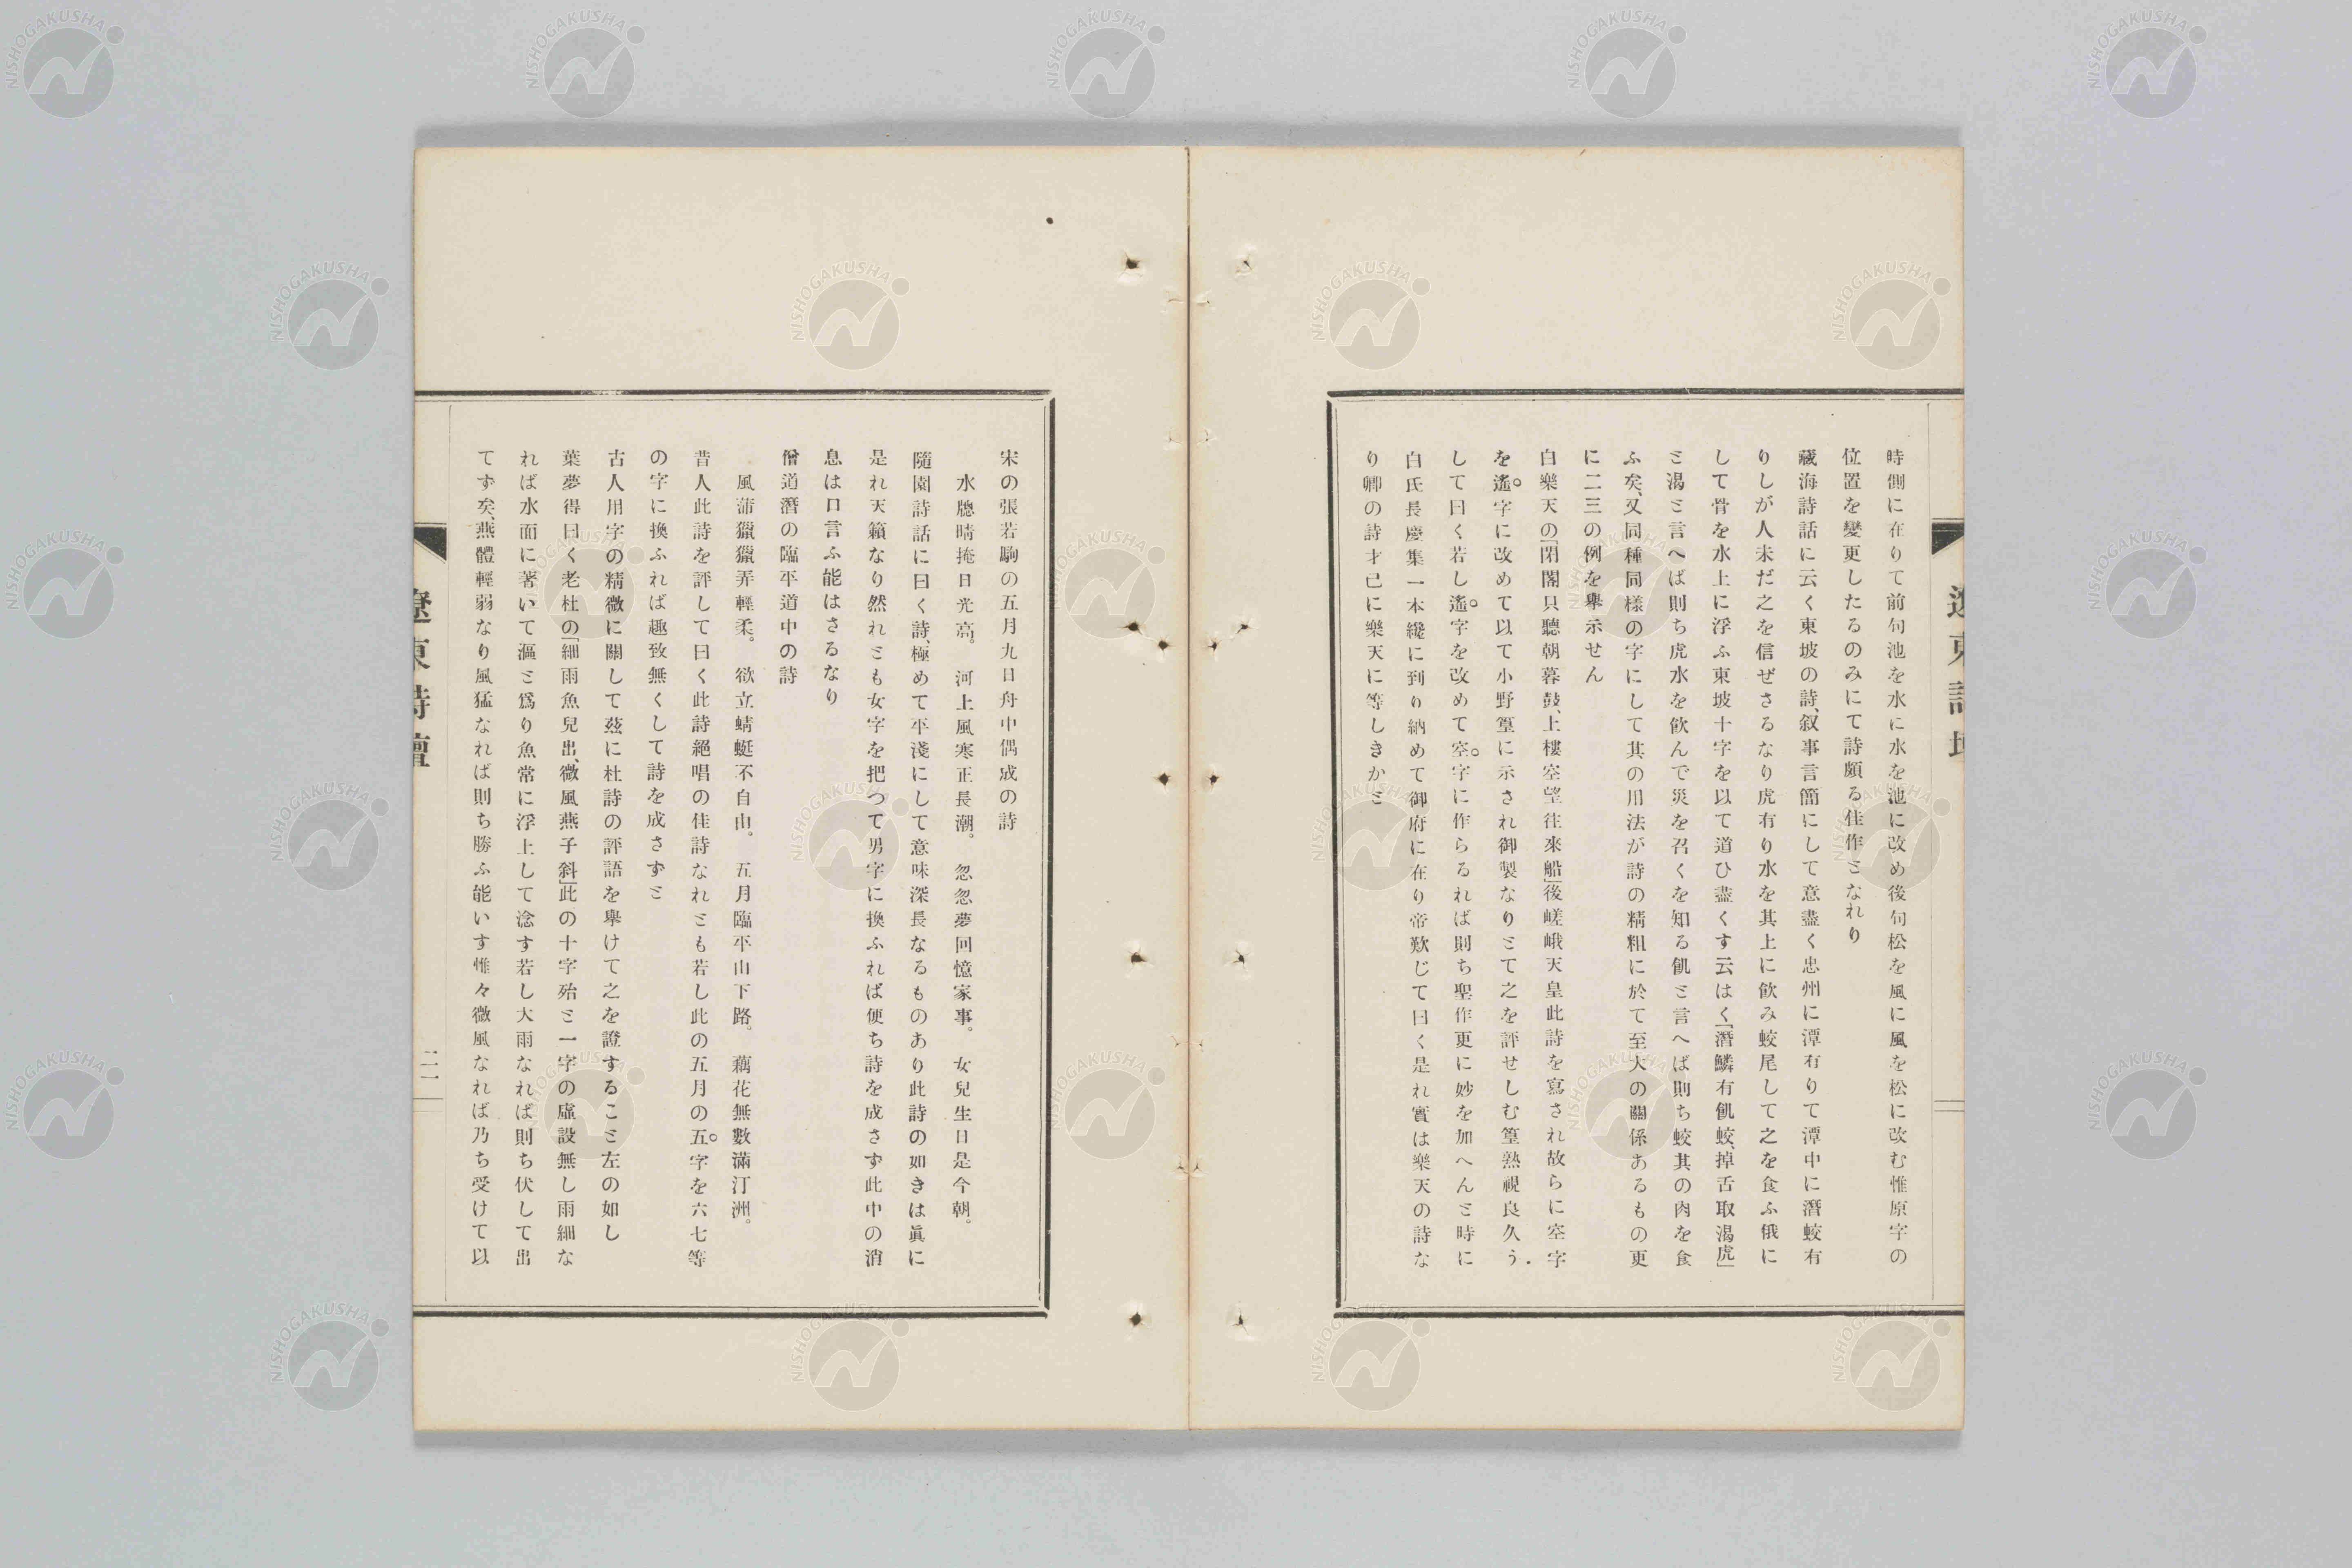 時側に在りて前句池を水に水を池に改め後句松を風に風を松に改む惟原字の
位置を變更したるのみにて詩頗る佳作となれり
藏海詩話に云く東坡の詩、叙事言簡にして意盡く忠州に潭有りて潭中に潛蛟有
りしが人未だ之を信ぜさるなり虎有り水を其上に飲み蛟尾して之を食ふ俄に
して骨を水上に浮ふ東坡十字を以て道ひ盡くす云はく「潛鱗有飢蛟、掉舌取渴虎」
と渴と言へば則ち虎水を飲んで災を召くを知る飢と言へば則ち蛟其の肉を食
ふ矣、又同種同樣の字にして其の用法が詩の精粗に於て至大の關係あるもの更
に二三の例を擧示せん
白樂天の「閉閣只聽朝暮鼓、上樓空望往來船」後嵯峨天皇此詩を寫され故らに空字
を遙。字に改めて以て小野篁に示され御製なりとて之を評せしむ篁熟視良久う.
して曰く若し遙。字を改めて空。字に作らるれば則ち聖作更に妙を加へんと時に
白氏長慶集一本纔に到り納めて御府に在り帝歎じて曰く是れ實は樂天の詩な
り卿の詩才已に樂天に等しきかと
遼東詩壇
宋の張若駒の五月九日舟中偶成の詩
水牕晴掩日光高。 河上風寒正長潮。 忽忽夢回憶家事。 女兒生日是今朝。
隨園詩話に曰く詩、極めて平淺にして意味深長なるものあり此詩の如きは眞に
是れ天籟なり然れとも女字を把つて男字に換ふれば便ち詩を成さず此中の消
息は口言ふ能はさるなり
僧道潛の臨平道中の詩
風蒲獵獵弄輕柔。 欲立蜻蜓不自由。 五月臨平山下路。 藕花無數滿汀洲。
昔人此詩を評して曰く此詩絕唱の佳詩なれとも若し此の五月の五。字を六七等
の字に換ふれば趣致無くして詩を成さずと
古人用字の精微に關して茲に杜詩の評語を擧けて之を證すること左の如し
葉夢得曰く老杜の「細雨魚兒出、微風燕子斜」此の十字殆と一字の虛設無し雨細な
れば水面に著いて漚と爲り魚常に浮上して淰す若し大雨なれば則ち伏して出
てず矣、燕體輕弱なり風猛なれば則ち勝ふ能いす惟々微風なれば乃ち受けて以
遼東詩壇
二一